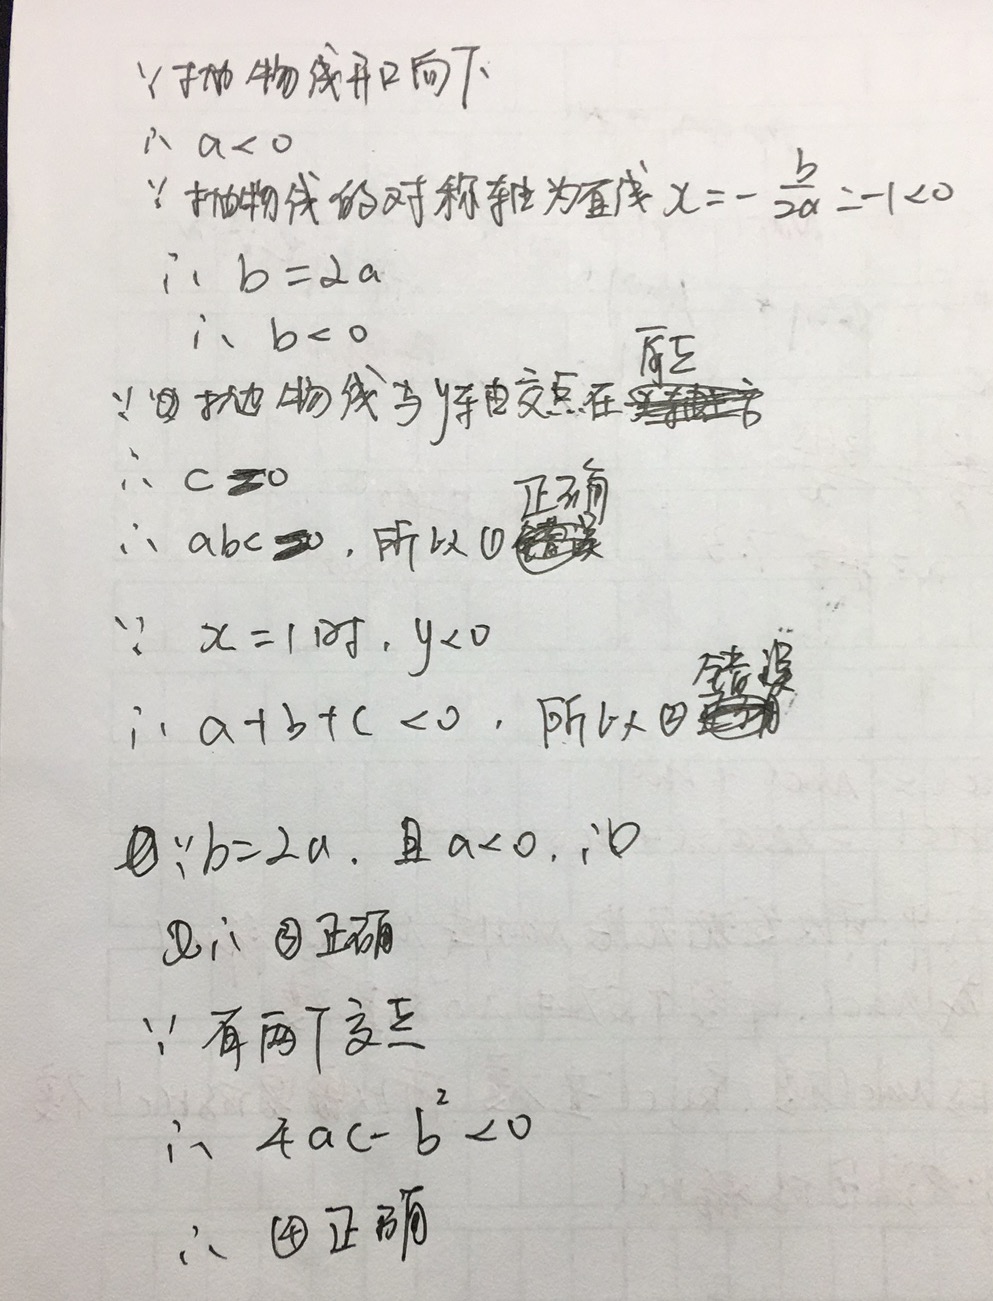 ∵抛物线开口向下
∴ a<0
∵抛物线的对称轴为直线 x=-b/2a=-1<0
∴ b=2a
∴ b<0
∵抛物线与y轴交点在原点
∴ c=0
∴ abc=0，所以①正确
∵ x=1时，y<0
∴ a+b+c<0，所以②错误
∵b=2a，且a<0，∴b
∴ ③正确
∵有两个交点
∴ 4ac-b²<0
∴ ④正确